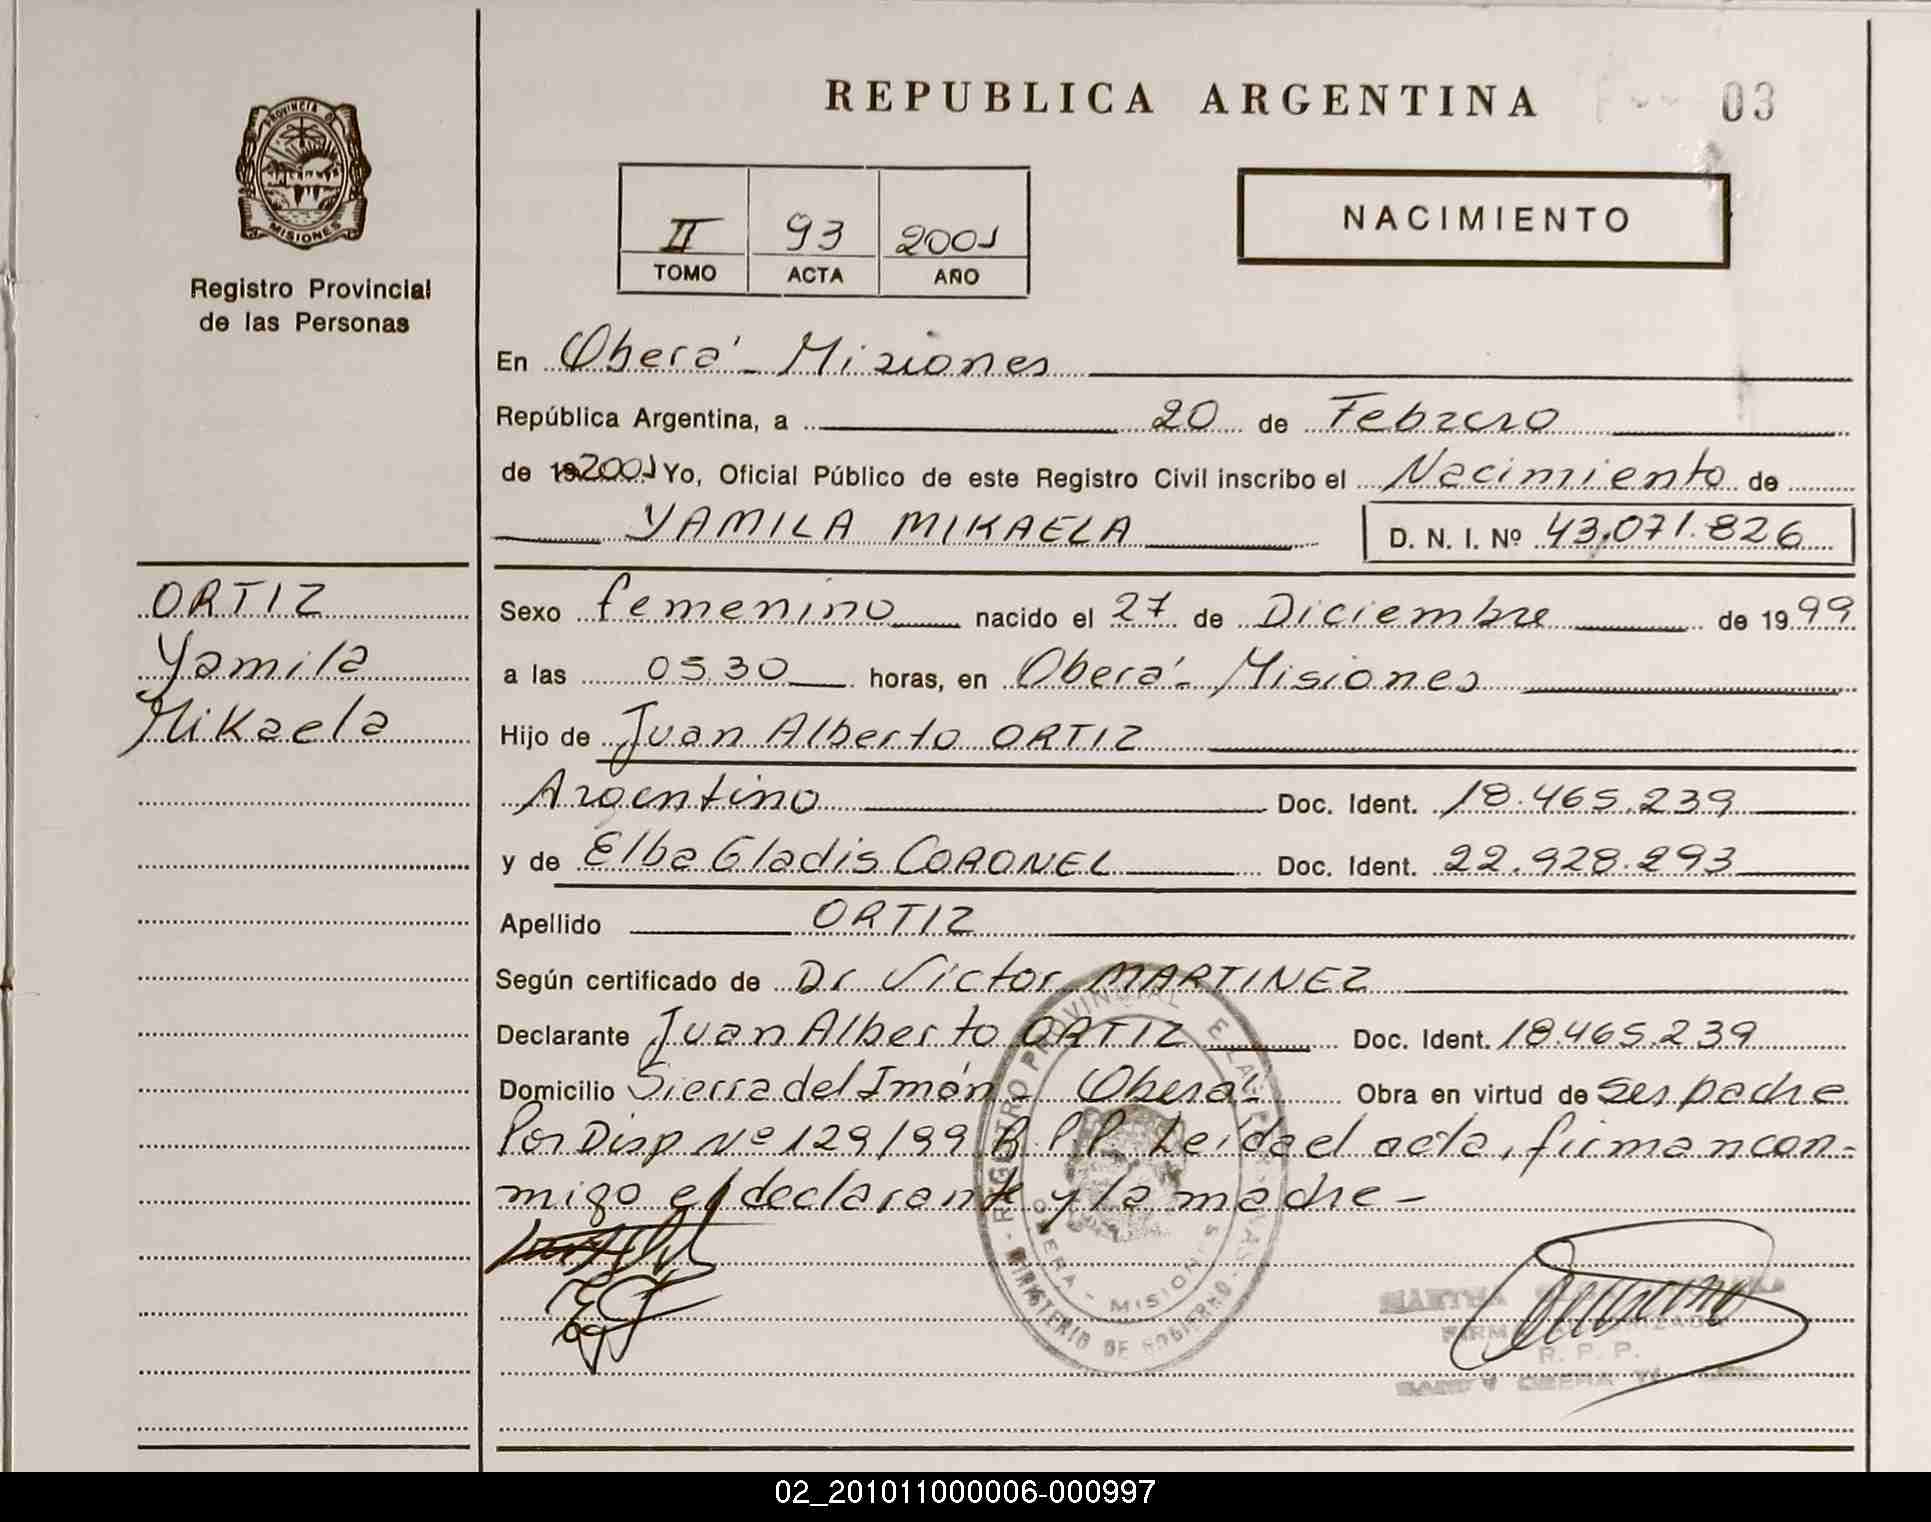 REPUBLICA ARGENTINA
03
PROVINCIA DE
MISIONES
Registro Provincial
de las Personas
II 93 2001
TOMO ACTA AÑO
NACIMIENTO
En Oberá - Misiones
República Argentina, a 20 de Febrero
de 19 2001 Yo, Oficial Público de este Registro Civil inscribo el Nacimiento de
YAMILA MIKAELA D. N. I. Nº 43.071.826
ORTIZ
Yamila
Mikaela
Sexo femenino nacido el 27 de Diciembre de 1999
a las 05.30 horas, en Oberá - Misiones
Hijo de Juan Alberto ORTIZ
Argentino Doc. Ident. 18.465.239
y de Elba Gladis CORONEL Doc. Ident. 22.928.293
Apellido ORTIZ
Según certificado de Dr Victor MARTINEZ
Declarante Juan Alberto ORTIZ Doc. Ident. 18.465.239
Domicilio Sierra del Imán - Oberá - Obra en virtud de ser padre
Por Disp Nº 129/99 R.P.P. Leída el acta, firman con-
migo el declarante y la madre -
REGISTRO PROVINCIAL DE LAS PERSONAS - MINISTERIO DE GOBIERNO -
OBERA - MISIONES
MARTHA
FIRMA AUTORIZADA
R. P. P.
OBERA
02_201011000006-000997